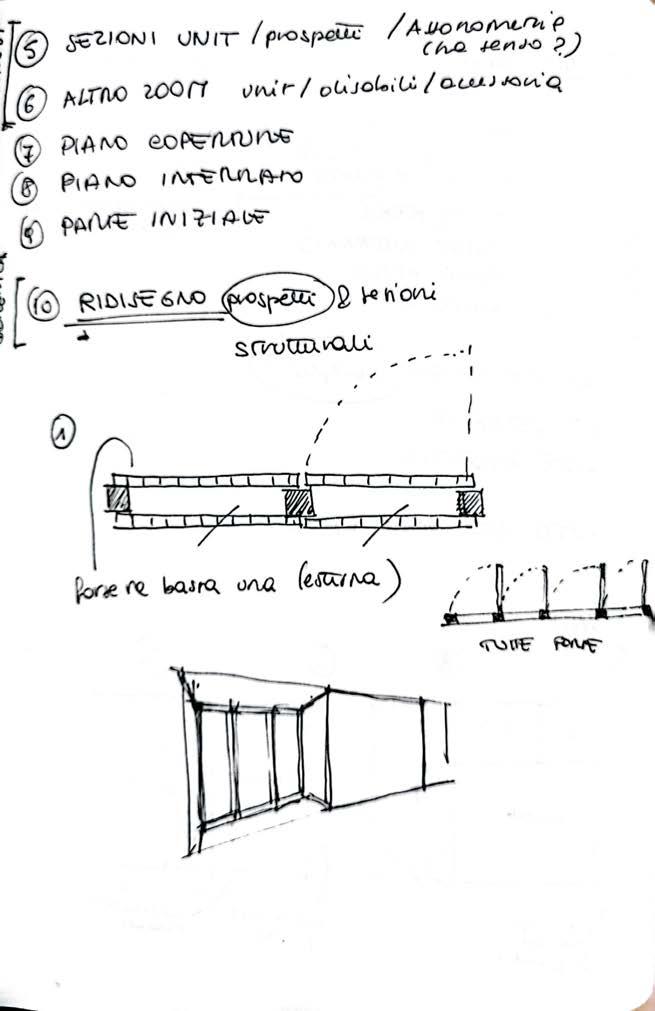 5 SEZIONI UNIT / prospetti / Assonometrie
(ha senso?)
6 ALTRO ZOOM unit / disabili / accessoria
7 PIANO COPERTURE
8 PIANO INTERRATO
9 PARTE INIZIALE
10 RIDISEGNO prospetti & sezioni
strutturali
1
forse ne basta una (esterna)
TUTTE PORTE